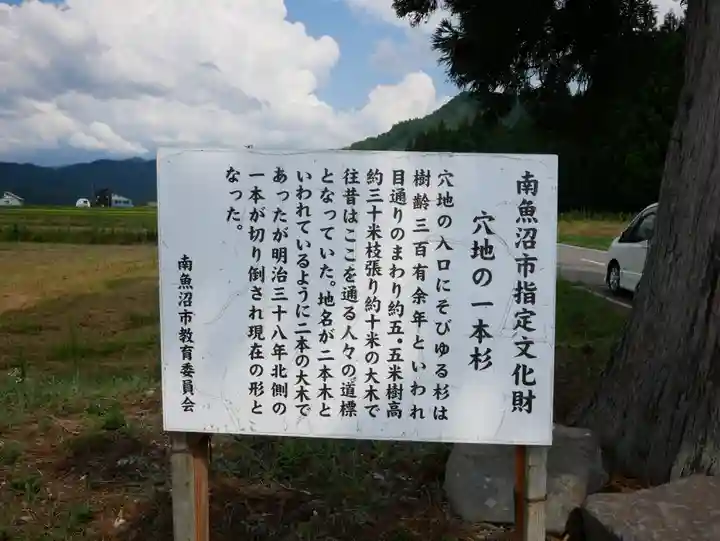 南魚沼市指定文化財
穴地の一本杉
穴地の入口にそびゆる杉は
樹齢三百有余年といわれ
目通りのまわり約五.五米樹高
約三十米枝張り約十米の大木で
往昔はここを通る人々の道標
となっていた。地名が二本木と
いわれているように二本の大木で
あったが明治三十八年北側の
一本が切り倒され現在の形と
なった。
南魚沼市教育委員会